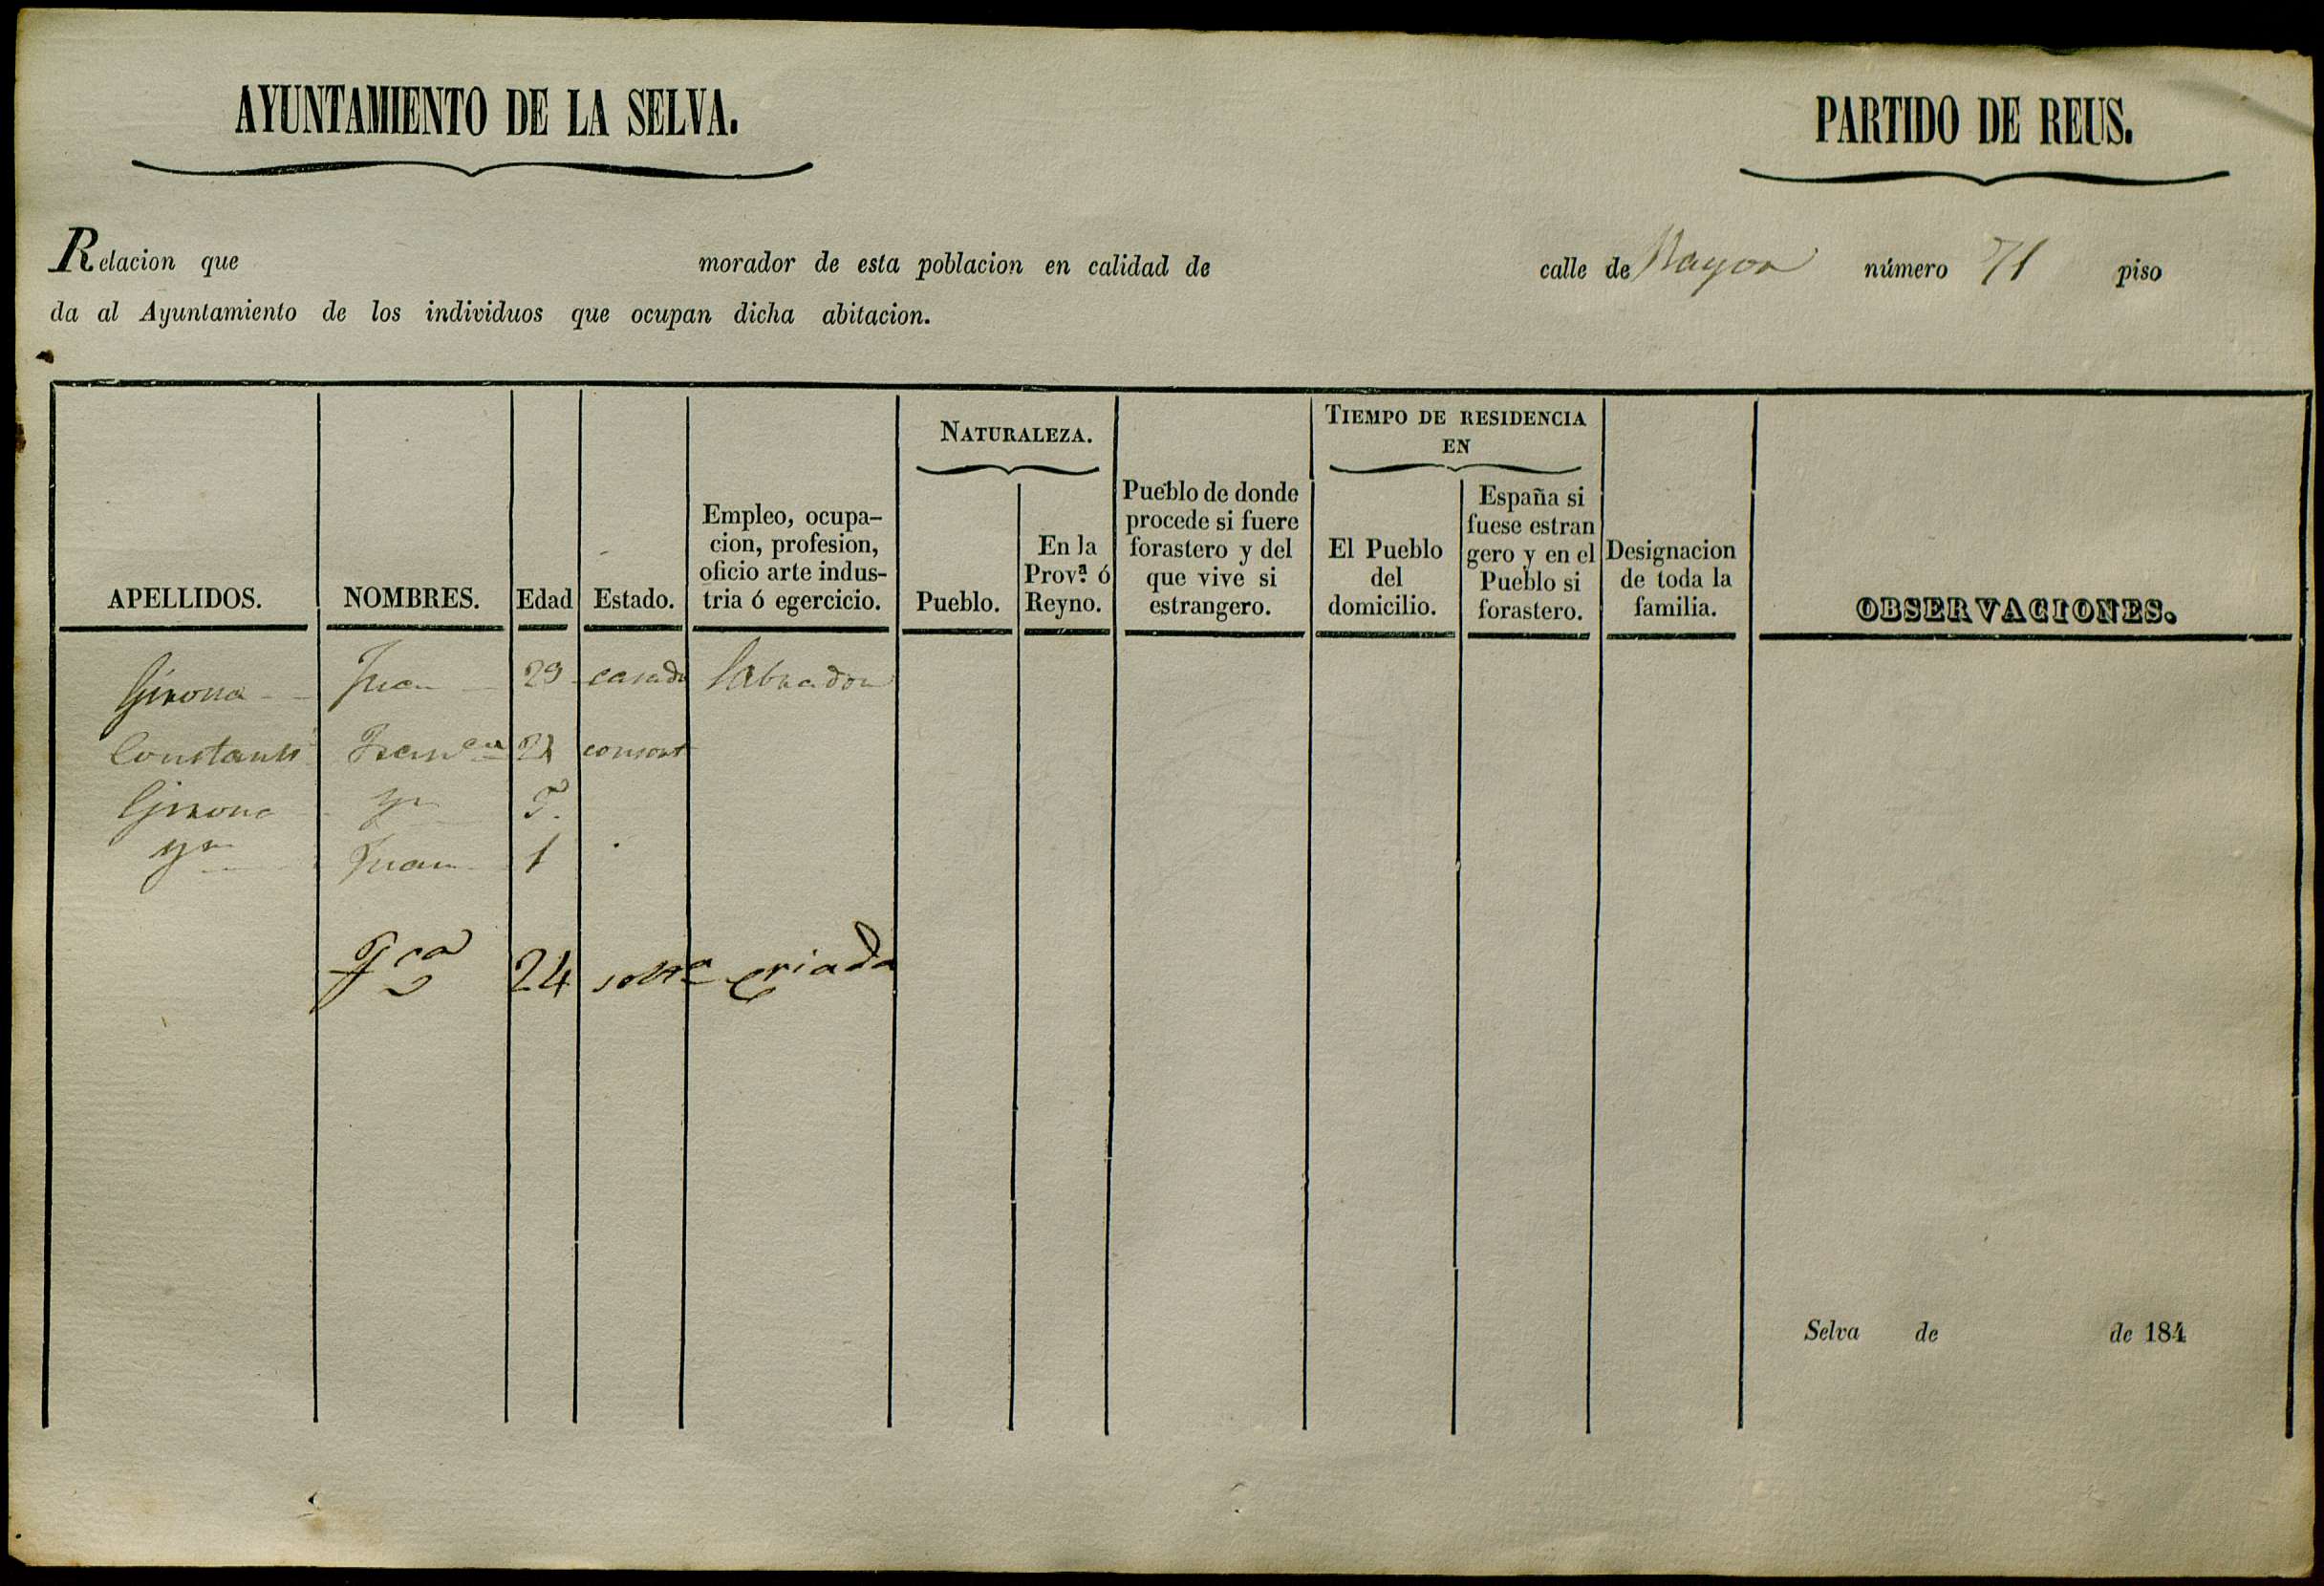 AYUNTAMIENTO DE LA SELVA.
PARTIDO DE REUS.
Relacion que morador de esta poblacion en calidad de calle de Mayor número 71 piso
da al Ayuntamiento de los individuos que ocupan dicha abitacion.
APELLIDOS.
NOMBRES.
Edad
Estado.
Empleo, ocupa-
cion, profesion,
oficio arte indus-
tria ó egercicio.
NATURALEZA.
Pueblo.
En la
Provª. ó
Reyno.
Pueblo de donde
procede si fuere
forastero y del
que vive si
estrangero.
TIEMPO DE RESIDENCIA
EN
El Pueblo
del
domicilio.
España si
fuese estran
gero y en el
Pueblo si
forastero.
Designacion
de toda la
familia.
OBSERVACIONES.
Girona Juan 29 casado labrador
Constanti Franca consort
Girona yn
yn Juan 1
Fca 24 solta criada
Selva de de 184